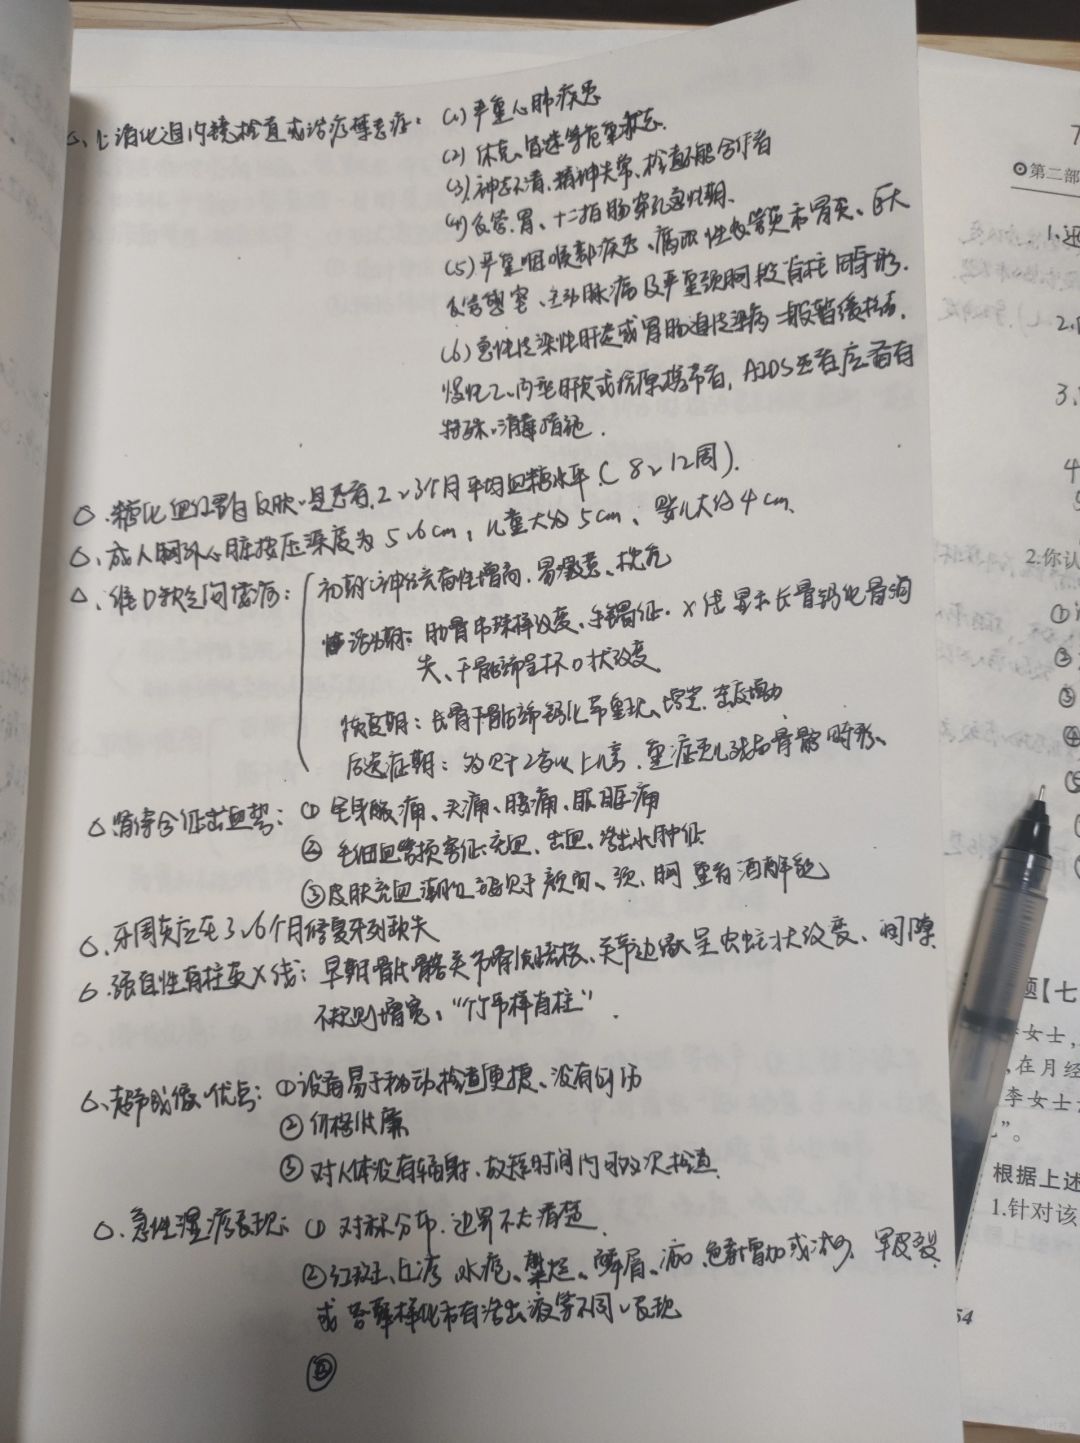 △、上消化道内镜检查或治疗禁忌症：(1)严重心肺疾患
(2) 休克、昏迷等危重状态.
(3).神志不清、精神失常、检查不能合作者
(4)食管.胃、十二指肠穿孔急性期.
(5)严重咽喉部疾患、腐蚀性食管炎和胃炎、巨大
食管憩室、主动脉瘤及严重颈胸段脊柱畸形.
(6)急性传染性肝炎或胃肠道传染病一般暂缓检查.
慢性乙、丙型肝炎或抗原携带者，AIDS患者应备有
特殊、消毒措施.
△.糖化血红蛋白反映、是患者、2~3个月平均血糖水平.(8~12周).
△、成人胸外心脏按压深度为5~6cm，儿童大约5cm，婴儿大约4cm、
△、维D缺乏佝偻病：初期：神经兴奋性增高、易激惹、枕秃
活动期：肋骨串珠样改变、手镯征. X线显示长骨钙化带消
失、干骺端呈杯口状改变
恢复期：长骨干骺端钙化带重现、增宽、密度增加
后遗症期：多见于2岁以上儿童，重症患儿残留骨骼畸形、
△肾综合征出血热：①全身酸痛、头痛、腰痛、眼眶痛
②毛细血管损害征：充血、出血、渗出水肿征
③皮肤充血潮红主要见于颜面、颈、胸 重者酒醉貌
△.牙周炎应在3~6个月修复牙列缺失
△.强直性脊柱炎X线：早期骶髂关节骨质疏松、关节边缘呈虫蛀状改变、间隙
不规则增宽，“竹节样脊柱”.
△、超声成像、优点：①设备易于移动检查便捷、没有创伤
②价格低廉
③对人体没有辐射、故短时间内可多次检查
△.急性湿疹表现：①对称分布.边界不太清楚.
②红斑、丘疹 水疱、糜烂、鳞屑、痂、色素增加或减少、皲裂
或苔藓样化和有渗出液等不同、表现
③
第二部
1.还
2.
3.
4
5
2.你认
①
②
③
④
⑤
题【七
李女士，
，在月经
李女士
”。
根据上述
1.针对该
54